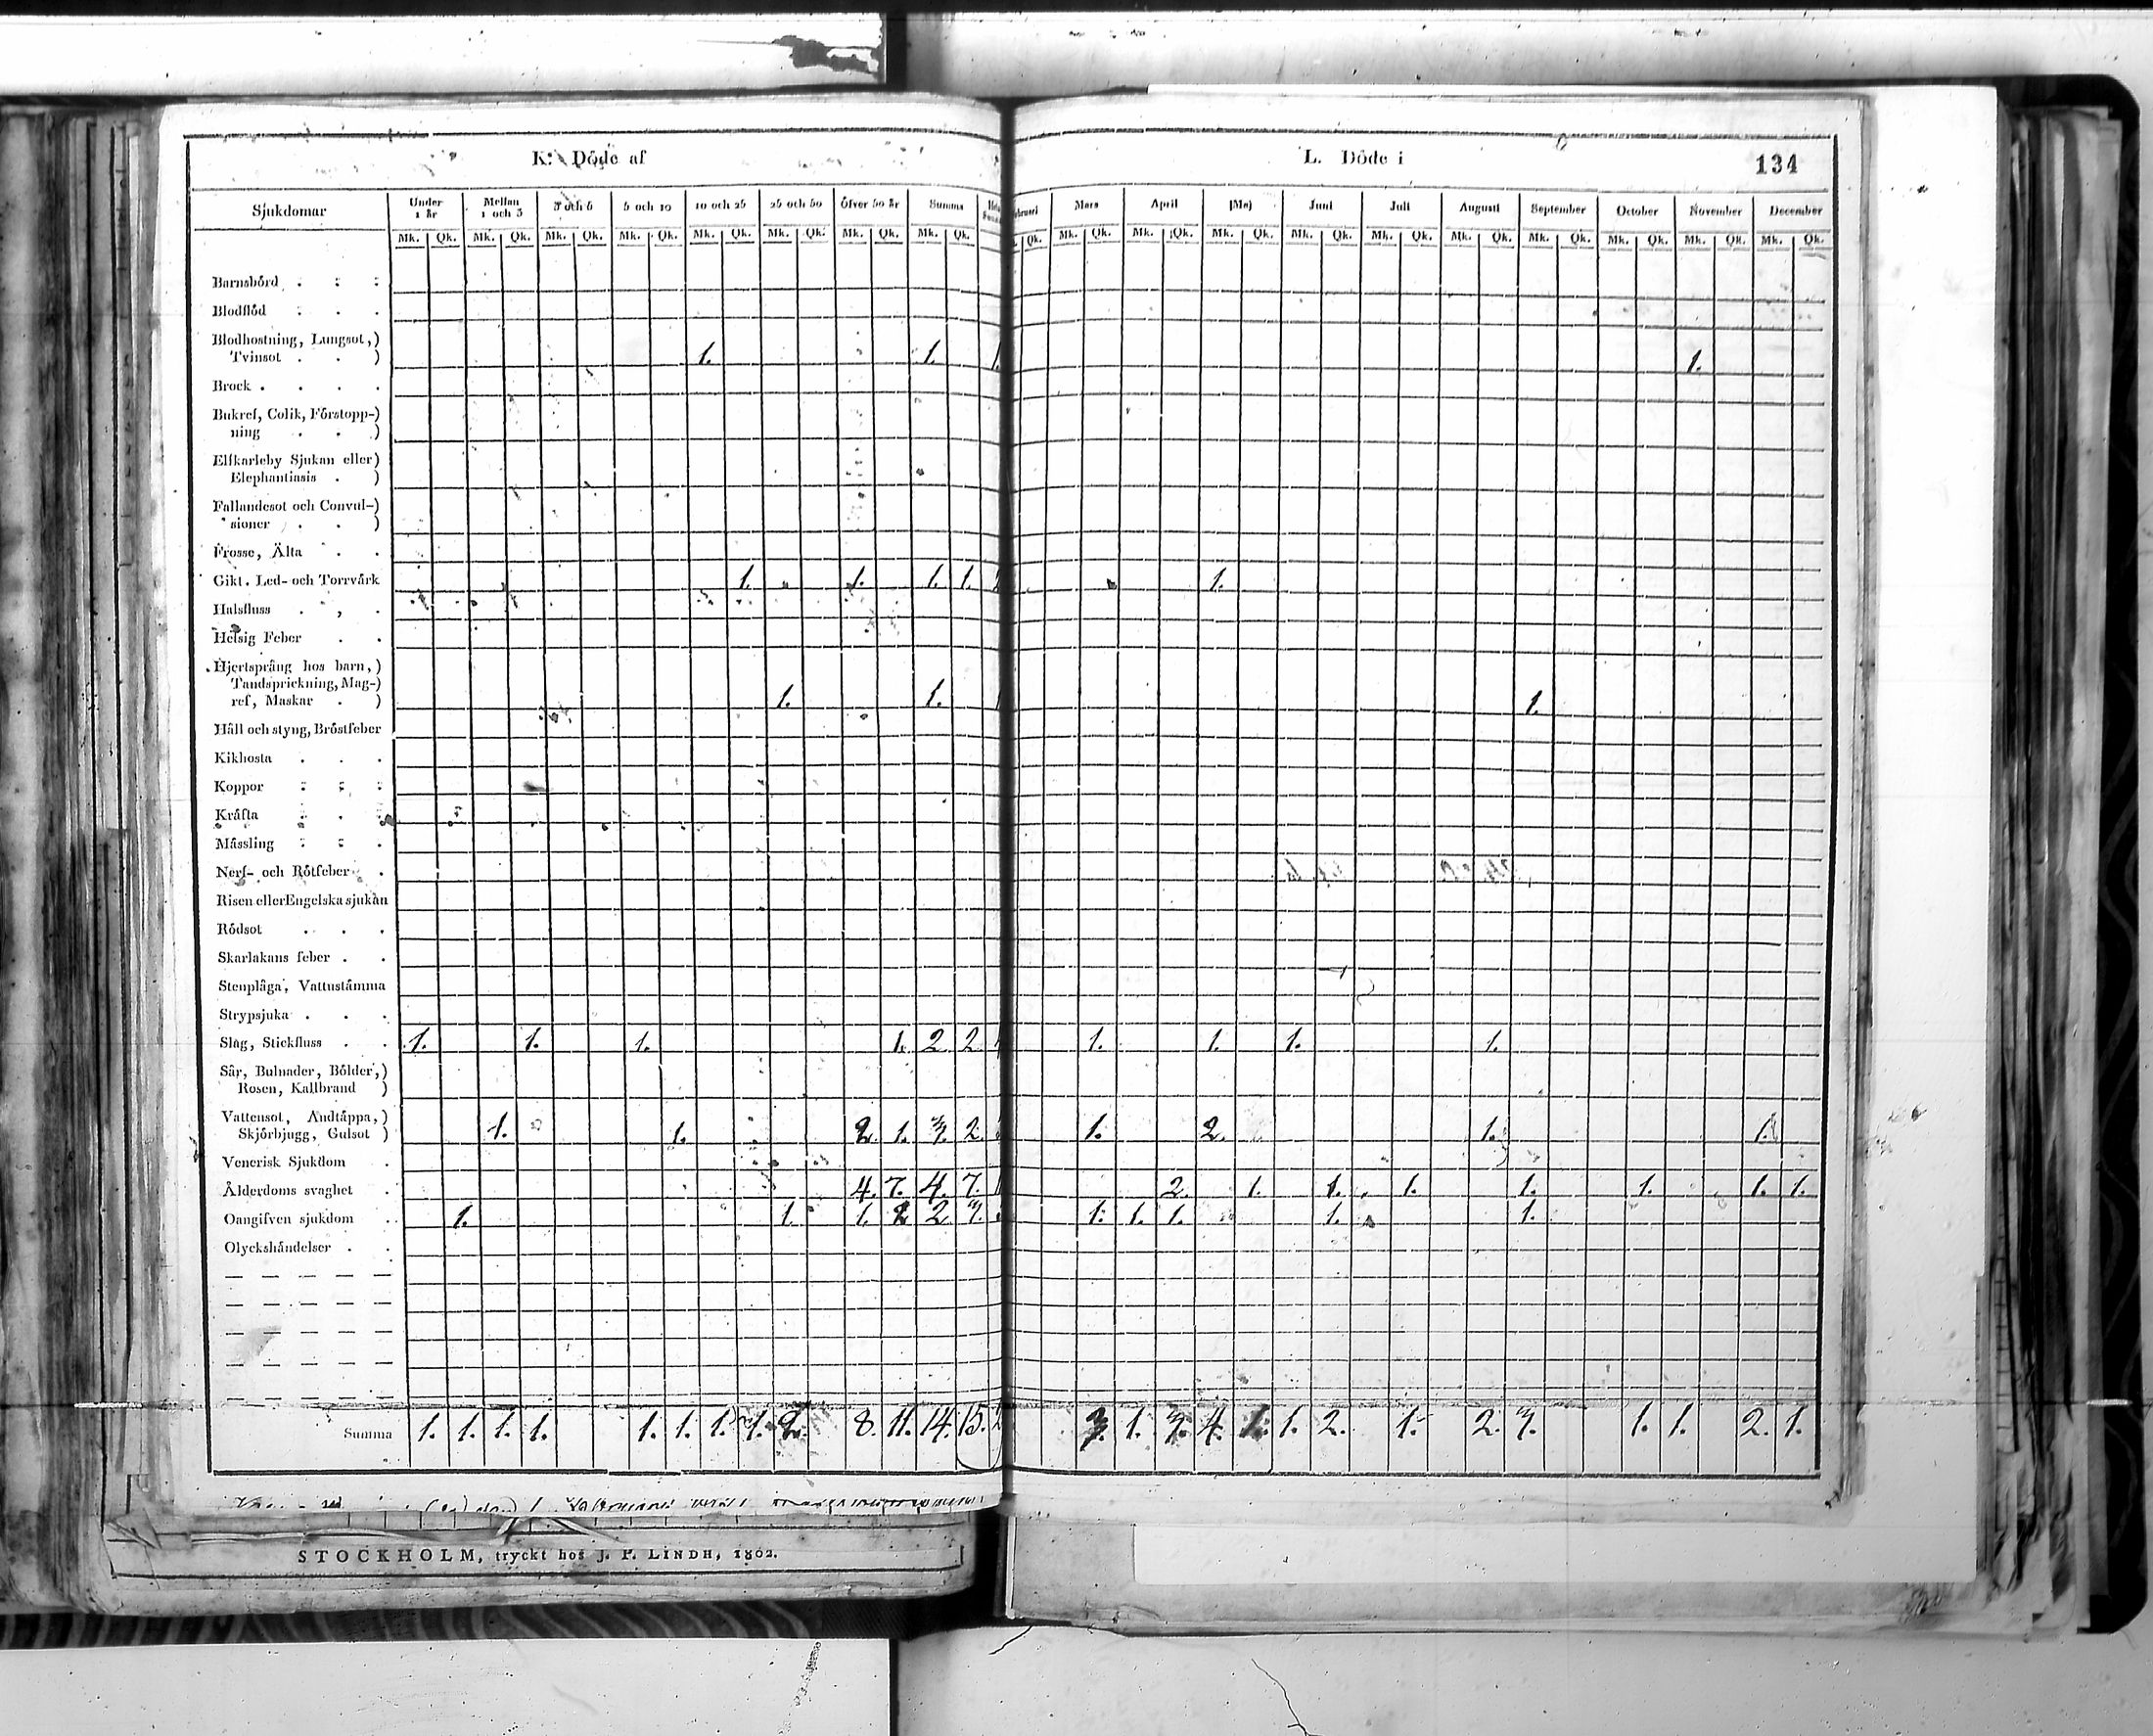 K. Döde af
L. Döde i
134
Sjukdomar Under 1 år Mellan 1 och 3 3 och 5 5 och 10 10 och 25 25 och 50 Öfver 50 år Summa
Mars April Maj Juni Juli Augusti September October November December
Mk. Qk. Mk. Qk. Mk. Qk. Mk. Qk. Mk. Qk. Mk. Qk. Mk. Qk. Mk. Qk.
Qk. Mk. Qk. Mk. Qk. Mk. Qk. Mk. Qk. Mk. Qk. Mk. Qk. Mk. Qk. Mk. Qk. Mk. Qk. Mk. Qk.
Barnsbörd
Blodflöd
Blodhostning, Lungsot,)
Tvinsot . . ) 1. 1. 1. 1.
Brock . . . .
Bukref, Colik, Förstopp-)
ning . . )
Elfkarleby Sjukan eller)
Elephantiasis . )
Fallandesot och Convul-)
sioner . . )
Frosse, Älta . .
Gikt. Led- och Torrvärk 1. 1. 1. 1. 1.
Halsfluss
Hetsig Feber . .
Hjertsprång hos barn,)
Tandsprickning, Mag-)
ref, Maskar . ) 1. 1. 1.
Håll och styng, Bröstfeber
Kikhosta . . .
Koppor
Kräfta
Mässling
Nerf- och Rötfeber .
Risen eller Engelska sjukan
Rödsot . . .
Skarlakans feber . .
Stenplåga, Vattustämma
Strypsjuka . . .
Slag, Stickfluss . . 1. 1. 1. 1. 2 2 1. 1. 1. 1.
Sår, Bulnader, Bölder,)
Rosen, Kallbrand )
Vattensot, Andtäppa,)
Skjörbjugg, Gulsot ) 1. 1. 2. 1. 3. 2. 1. 2. 1. 1.
Venerisk Sjukdom .
Ålderdoms svaghet . 4. 7. 4. 7. 2. 1. 1. 1. 1. 1. 1. 1.
Oangifven sjukdom . 1. 1. 1. 2 2 3. 1. 1. 1. 1. 1.
Olyckshändelser . .
Summa 1. 1. 1. 1. 1. 1. 1. 1. 2. 8. 11. 14. 15. 3. 1. 3. 4. 1. 1. 2. 1. 2. 3. 1. 1. 2. 1.
STOCKHOLM, tryckt hos J. P. LINDH, 1802.